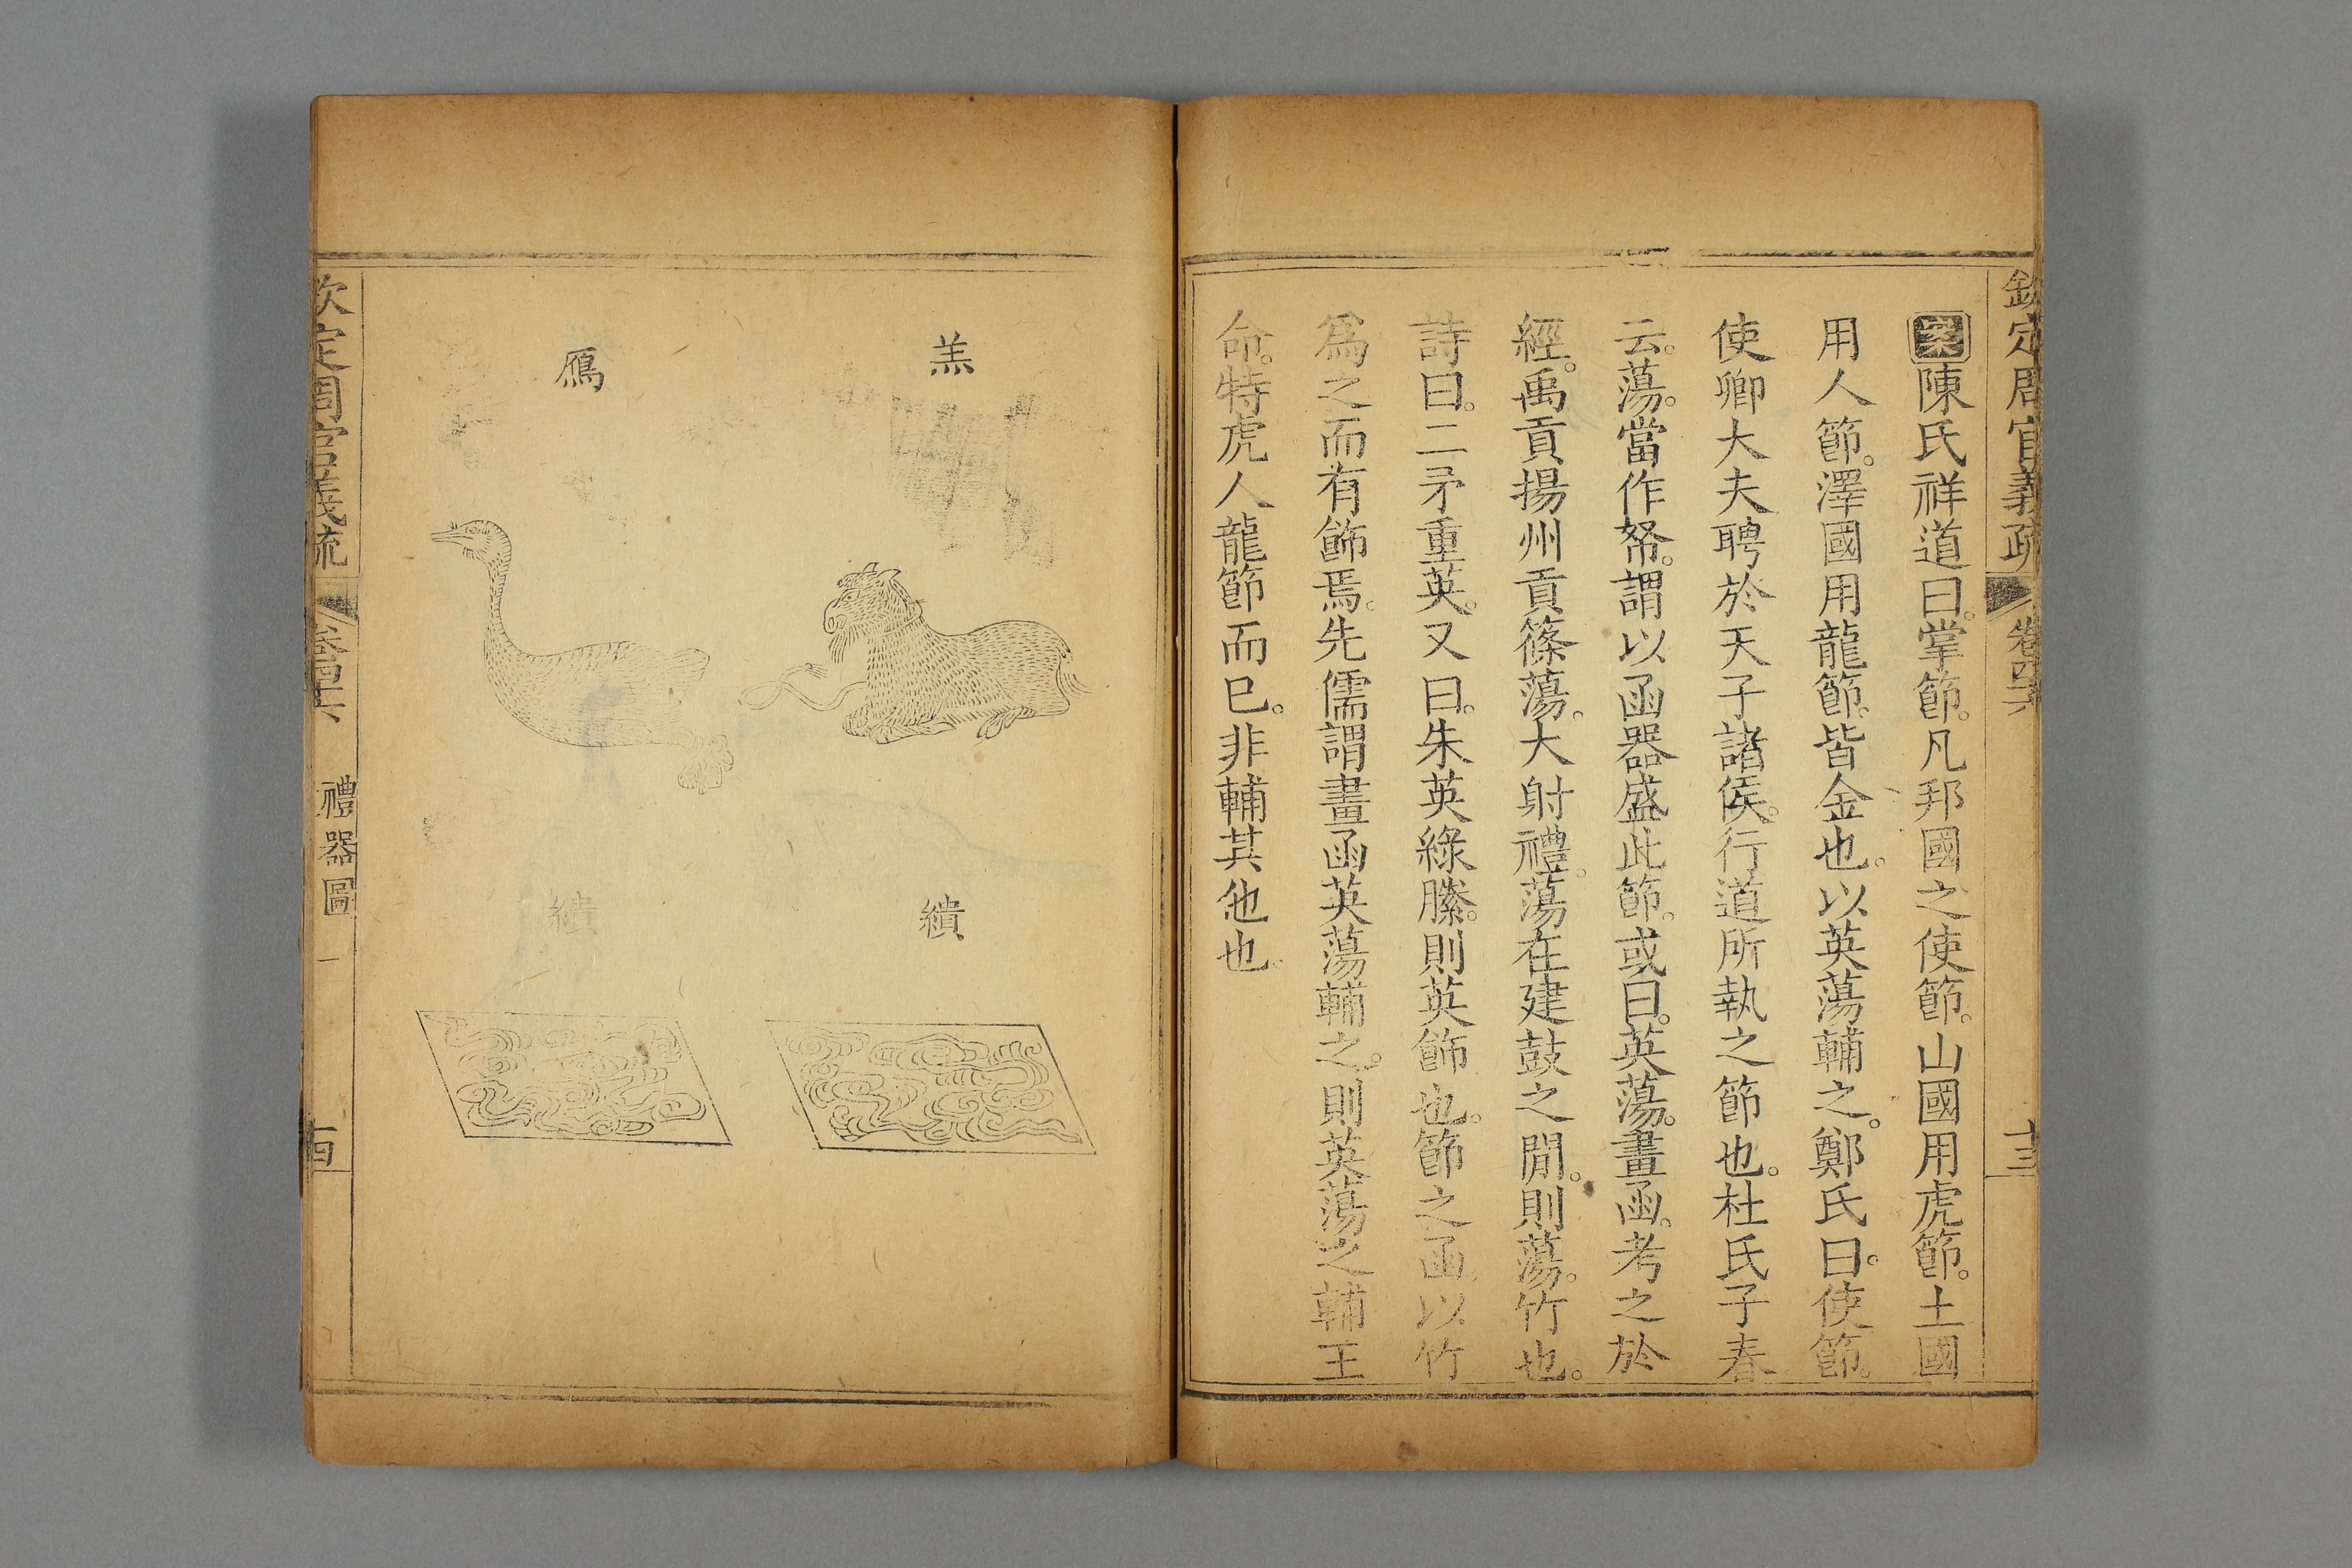 欽定周官義疏 卷四十六 十三
案陳氏祥道曰。掌節。凡邦國之使節。山國用虎節。土國
用人節。澤國用龍節。皆金也。以英蕩輔之。鄭氏曰。使節。
使卿大夫聘於天子諸侯。行道所執之節也。杜氏子春
云。蕩。當作帑。謂以函器盛此節。或曰。英蕩。畫函。考之於
經。禹貢揚州貢篠蕩。大射禮。蕩在建鼓之閒。則蕩。竹也。
詩曰。二矛重英。又曰。朱英綠縢。則英飾也。節之函。以竹
爲之而有飾焉。先儒謂畫函英蕩輔之。則英蕩之輔王
命。特虎人龍節而已。非輔其他也。
羔
鴈
繢
繢
欽定周官義疏 卷四十六 禮器圖一 十四